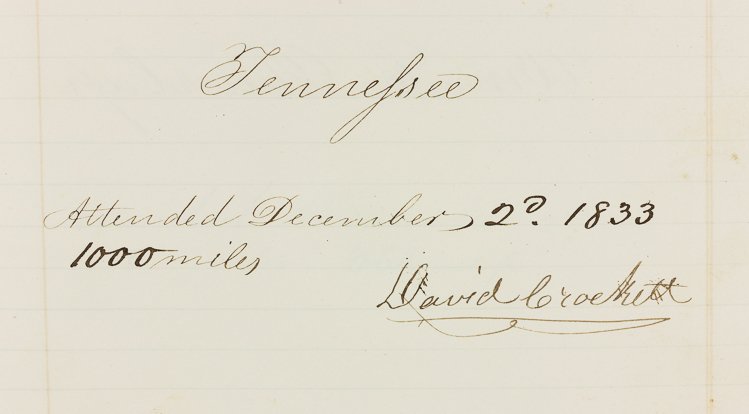 Tenneſsee
Attended December 2ᵈ. 1833
1000 miles
David Crockett